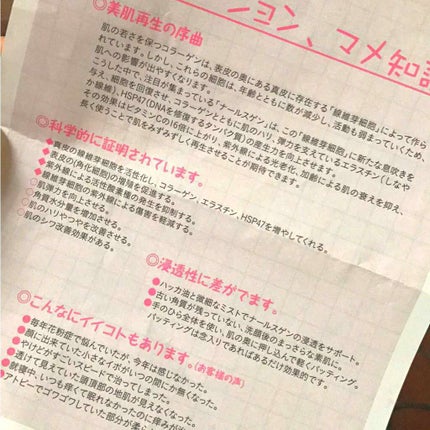 ション、マメ知
◎美肌再生の序曲
肌の若さを保つコラーゲンは、表皮の奥にある真皮に存在する「線維芽細胞」によって作ら
れています。しかし、これらの細胞は、年齢とともに数が減少し、活動も弱まっていくため、
肌への影響が出やすくなります。
こうした中で、注目が集まっている「ナールスゲン」は、この「線維芽細胞」に新たな息吹きを
与え、細胞を回復させ、コラーゲンとともに肌のハリ、弾力を支えているエラスチン(しなや
か線維)、HSP47(DNAを修復するタンパク質)の産生力を向上させます。
その効果はビタミンCの16倍に上がり、紫外線による光老化、加齢による肌の衰えを抑え、
長く使うことで肌をみずみずしく再生させることが期待できます。
◎科学的に証明されています。
◆真皮の線維芽細胞を活性化し、コラーゲン、エラスチン、HSP47を増やしてくれる。
◆表皮の(角化細胞)の増殖を促進する。
◆紫外線による活性酸素種の発生を抑制する。
○線維芽細胞の紫外線による傷害を軽減する。
○肌弾力を向上させる。
○角質水分量を増加させる。
○肌のハリやつやを改善させる。
○肌のシワ改善効果がある。
◎浸透性に差がでます。
●ハッカ油と微細なミストでナールスゲンの浸透をサポート。
●古い角質が残っていない、洗顔後のまっさらな素肌に。
●手のひら全体を使い、肌の奥に押し込んで軽くパッティング。
パッティングは念入りであればあるだけ効果的です。
◎こんなにイイコトもあります。(お客様の声)
●毎年花粉症で悩んでいたが、今年は感じなかった。
●顔に出来ていた小さなイボがいつの間にか無くなった。
●やけどがすごいスピードで治ってしまった。
●透けて見えていた頭頂部の地肌が見えなくなった。
●就寝中、いつも痒くて眠れなかったのに痒みが
●アトピーでゴワゴワしていた部分が柔ら